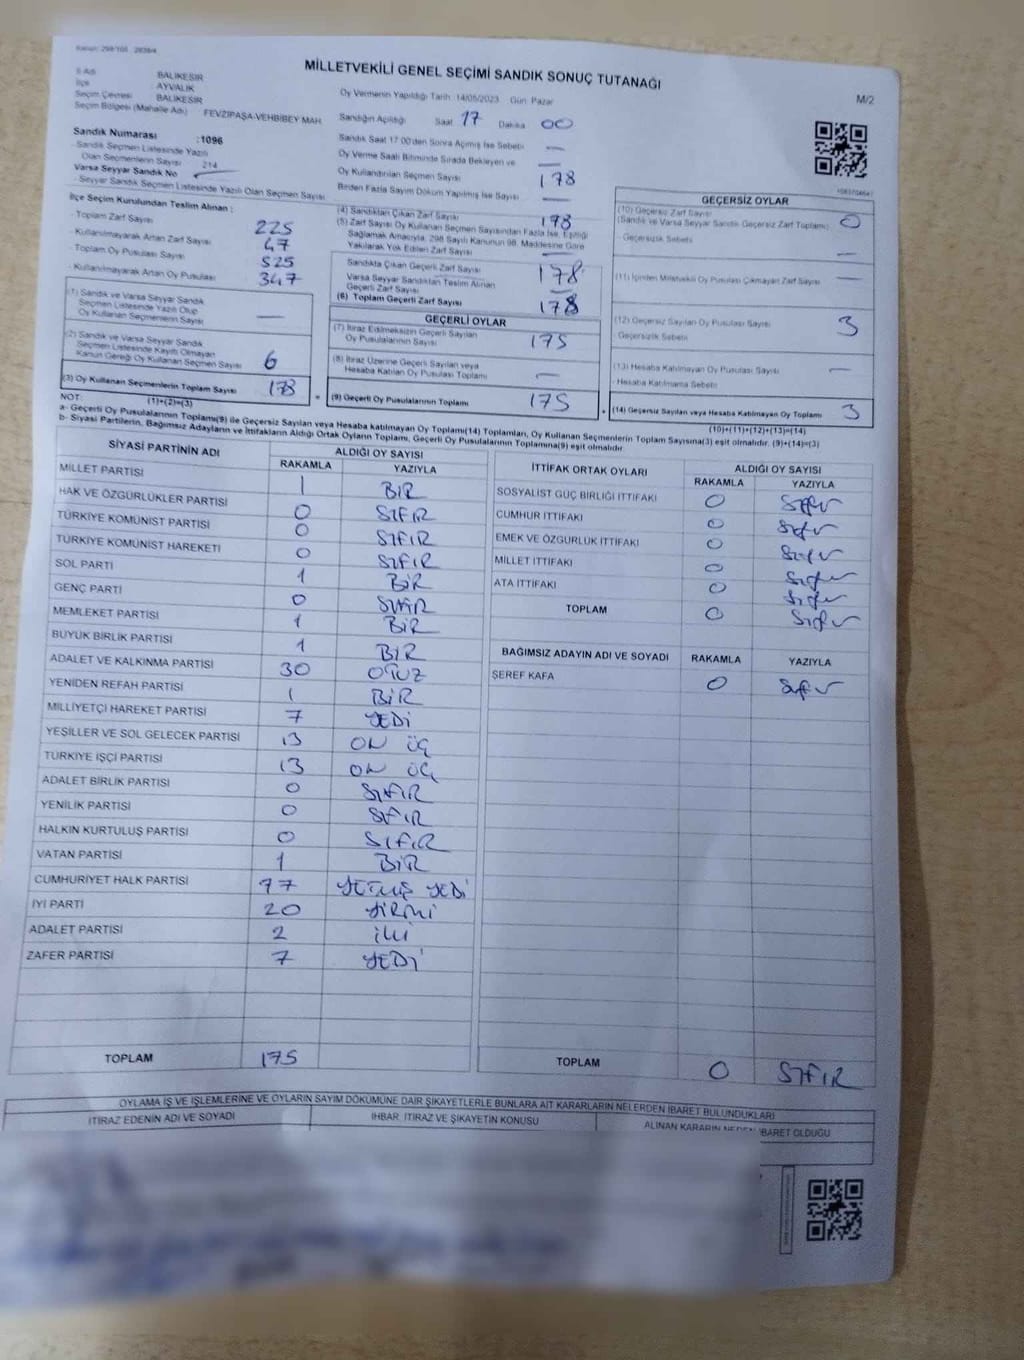 Kanun: 298/105 2839/4
MİLLETVEKİLİ GENEL SEÇİMİ SANDIK SONUÇ TUTANAĞI
M/2
İl Adı BALIKESİR
İlçe AYVALIK
Seçim Çevresi BALIKESİR
Seçim Bölgesi (Mahalle Adı) FEVZİPAŞA-VEHBİBEY MAH.
Oy Vermenin Yapıldığı Tarih :14/05/2023 Gün: Pazar
Sandığın Açıldığı Saat 17 Dakika 00
Sandık Numarası :1096
- Sandık Seçmen Listesinde Yazılı
Olan Seçmenlerin Sayısı 214
Varsa Seyyar Sandık No —
- Seyyar Sandık Seçmen Listesinde Yazılı Olan Seçmen Sayısı
Sandık Saat 17.00'den Sonra Açılmış İse Sebebi —
Oy Verme Saati Bitiminde Sırada Bekleyen ve —
Oy Kullandırılan Seçmen Sayısı 178
Birden Fazla Sayım Döküm Yapılmış İse Sayısı —
İlçe Seçim Kurulundan Teslim Alınan :
- Toplam Zarf Sayısı 225
- Kullanılmayarak Artan Zarf Sayısı 47
- Toplam Oy Pusulası Sayısı 525
- Kullanılmayarak Artan Oy Pusulası 347
(1) Sandık ve Varsa Seyyar Sandık
Seçmen Listesinde Yazılı Olup
Oy Kullanan Seçmenlerin Sayısı —
(2) Sandık ve Varsa Seyyar Sandık
Seçmen Listesinde Kayıtlı Olmayan
Kanun Gereği Oy Kullanan Seçmen Sayısı 6
(3) Oy Kullanan Seçmenlerin Toplam Sayısı 178
(1)+(2)=(3)
(4) Sandıktan Çıkan Zarf Sayısı 178
(5) Zarf Sayısı Oy Kullanan Seçmen Sayısından Fazla İse, Eşitliği
Sağlamak Amacıyla, 298 Sayılı Kanunun 98. Maddesine Göre
Yakılarak Yok Edilen Zarf Sayısı —
Sandıkta Çıkan Geçerli Zarf Sayısı 178
Varsa Seyyar Sandıktan Teslim Alınan
Geçerli Zarf Sayısı —
(6) Toplam Geçerli Zarf Sayısı 178
GEÇERLİ OYLAR
(7) İtiraz Edilmeksizin Geçerli Sayılan
Oy Pusulalarının Sayısı 175
(8) İtiraz Üzerine Geçerli Sayılan veya
Hesaba Katılan Oy Pusulası Toplamı —
(9) Geçerli Oy Pusulalarının Toplamı 175
GEÇERSİZ OYLAR
(10) Geçersiz Zarf Sayısı
(Sandık ve Varsa Seyyar Sandık Geçersiz Zarf Toplamı) 0
- Geçersizlik Sebebi —
(11) İçinden Milletvekili Oy Pusulası Çıkmayan Zarf Sayısı
(12) Geçersiz Sayılan Oy Pusulası Sayısı 3
- Geçersizlik Sebebi
(13) Hesaba Katılmayan Oy Pusulası Sayısı —
- Hesaba Katılmama Sebebi
(14) Geçersiz Sayılan veya Hesaba Katılmayan Oy Toplamı 3
(10)+(11)+(12)+(13)=(14)
NOT:
a- Geçerli Oy Pusulalarının Toplamı(9) ile Geçersiz Sayılan veya Hesaba katılmayan Oy Toplamı(14) Toplamları, Oy Kullanan Seçmenlerin Toplam Sayısına(3) eşit olmalıdır. (9)+(14)=(3)
b- Siyasi Partilerin, Bağımsız Adayların ve İttifakların Aldığı Ortak Oyların Toplamı, Geçerli Oy Pusulalarının Toplamına(9) eşit olmalıdır.
SİYASİ PARTİNİN ADI ALDIĞI OY SAYISI
RAKAMLA YAZIYLA
MİLLET PARTİSİ 1 BİR
HAK VE ÖZGÜRLÜKLER PARTİSİ 0 SIFIR
TÜRKİYE KOMÜNİST PARTİSİ 0 SIFIR
TÜRKİYE KOMÜNİST HAREKETİ 0 SIFIR
SOL PARTİ 1 BİR
GENÇ PARTİ 0 SIFIR
MEMLEKET PARTİSİ 1 BİR
BÜYÜK BİRLİK PARTİSİ 1 BİR
ADALET VE KALKINMA PARTİSİ 30 OTUZ
YENİDEN REFAH PARTİSİ 1 BİR
MİLLİYETÇİ HAREKET PARTİSİ 7 YEDİ
YEŞİLLER VE SOL GELECEK PARTİSİ 13 ON ÜÇ
TÜRKİYE İŞÇİ PARTİSİ 13 ON ÜÇ
ADALET BİRLİK PARTİSİ 0 SIFIR
YENİLİK PARTİSİ 0 SIFIR
HALKIN KURTULUŞ PARTİSİ 0 SIFIR
VATAN PARTİSİ 1 BİR
CUMHURİYET HALK PARTİSİ 77 YETMİŞ YEDİ
İYİ PARTİ 20 YİRMİ
ADALET PARTİSİ 2 İKİ
ZAFER PARTİSİ 7 YEDİ
TOPLAM 175
İTTİFAK ORTAK OYLARI ALDIĞI OY SAYISI
RAKAMLA YAZIYLA
SOSYALİST GÜÇ BİRLİĞİ İTTİFAKI 0 Sıfır
CUMHUR İTTİFAKI 0 Sıfır
EMEK VE ÖZGÜRLÜK İTTİFAKI 0 Sıfır
MİLLET İTTİFAKI 0 Sıfır
ATA İTTİFAKI 0 Sıfır
TOPLAM 0 Sıfır
BAĞIMSIZ ADAYIN ADI VE SOYADI RAKAMLA YAZIYLA
ŞEREF KAFA 0 Sıfır
TOPLAM 0 SIFIR
OYLAMA İŞ VE İŞLEMLERİNE VE OYLARIN SAYIM DÖKÜMÜNE DAİR ŞİKAYETLERLE BUNLARA AİT KARARLARIN NELERDEN İBARET BULUNDUKLARI
İTİRAZ EDENİN ADI VE SOYADI İHBAR, İTİRAZ VE ŞİKAYETİN KONUSU ALINAN KARARIN NEDEN İBARET OLDUĞU